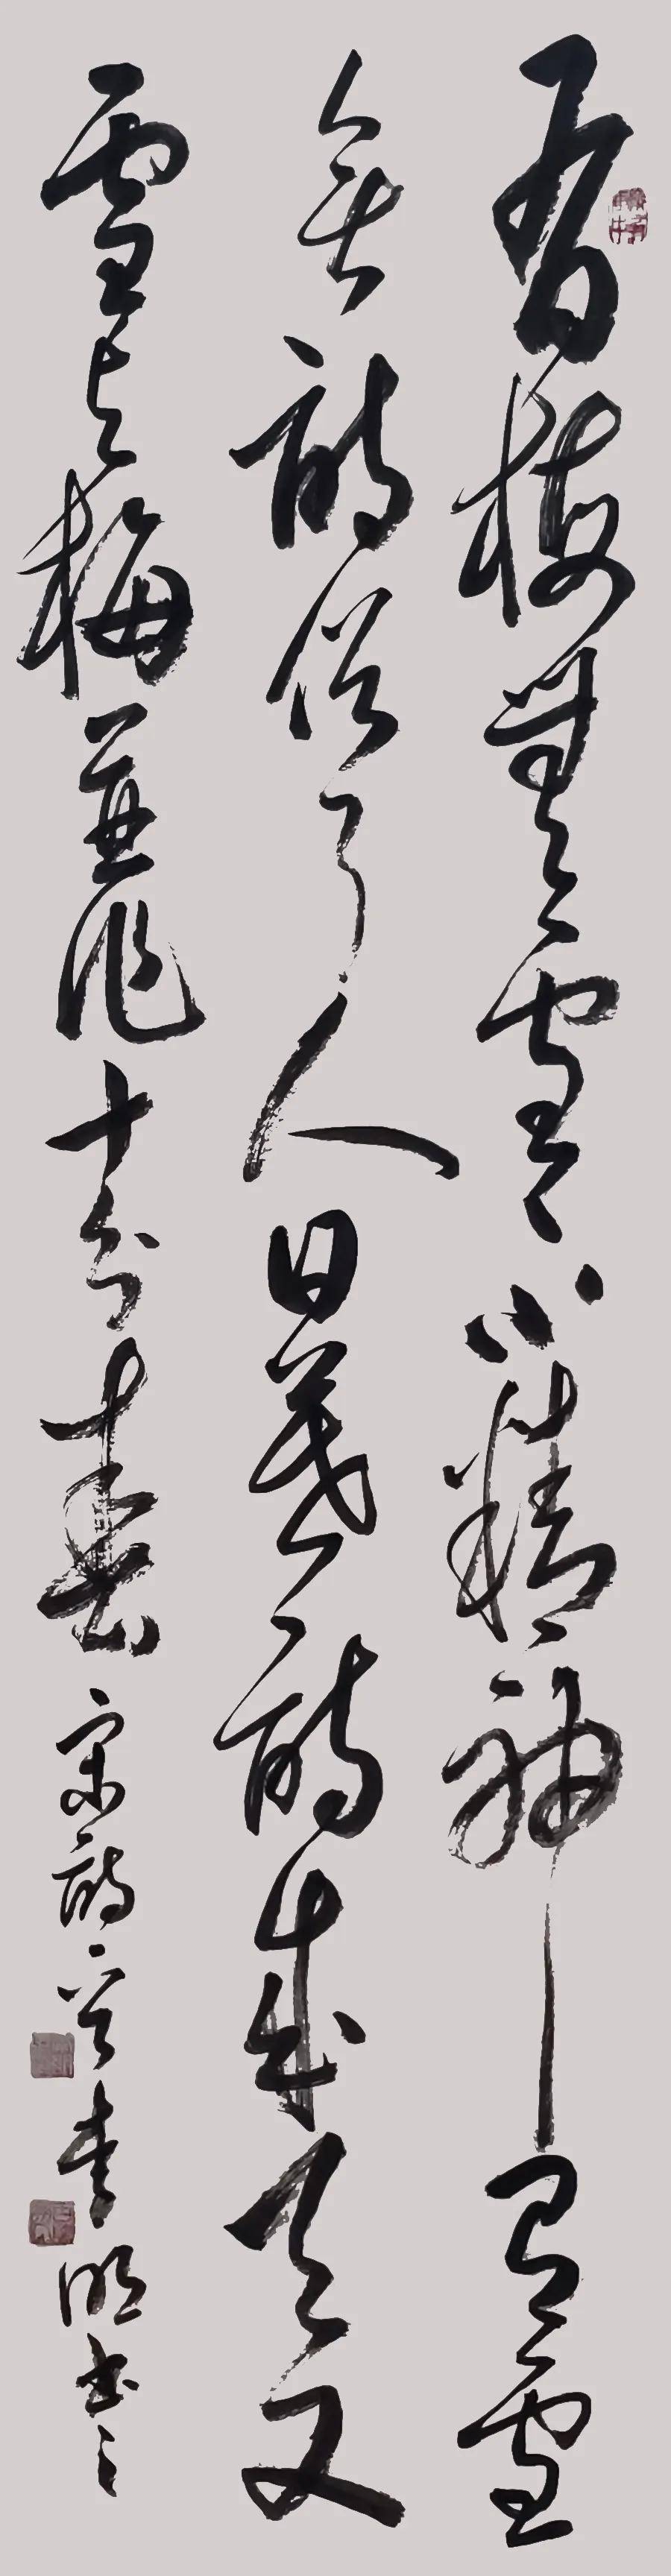 有梅無雪不精神有雪
無詩俗了人日暮詩成天又
雪与梅並作十分春 宋詩一首 明書之